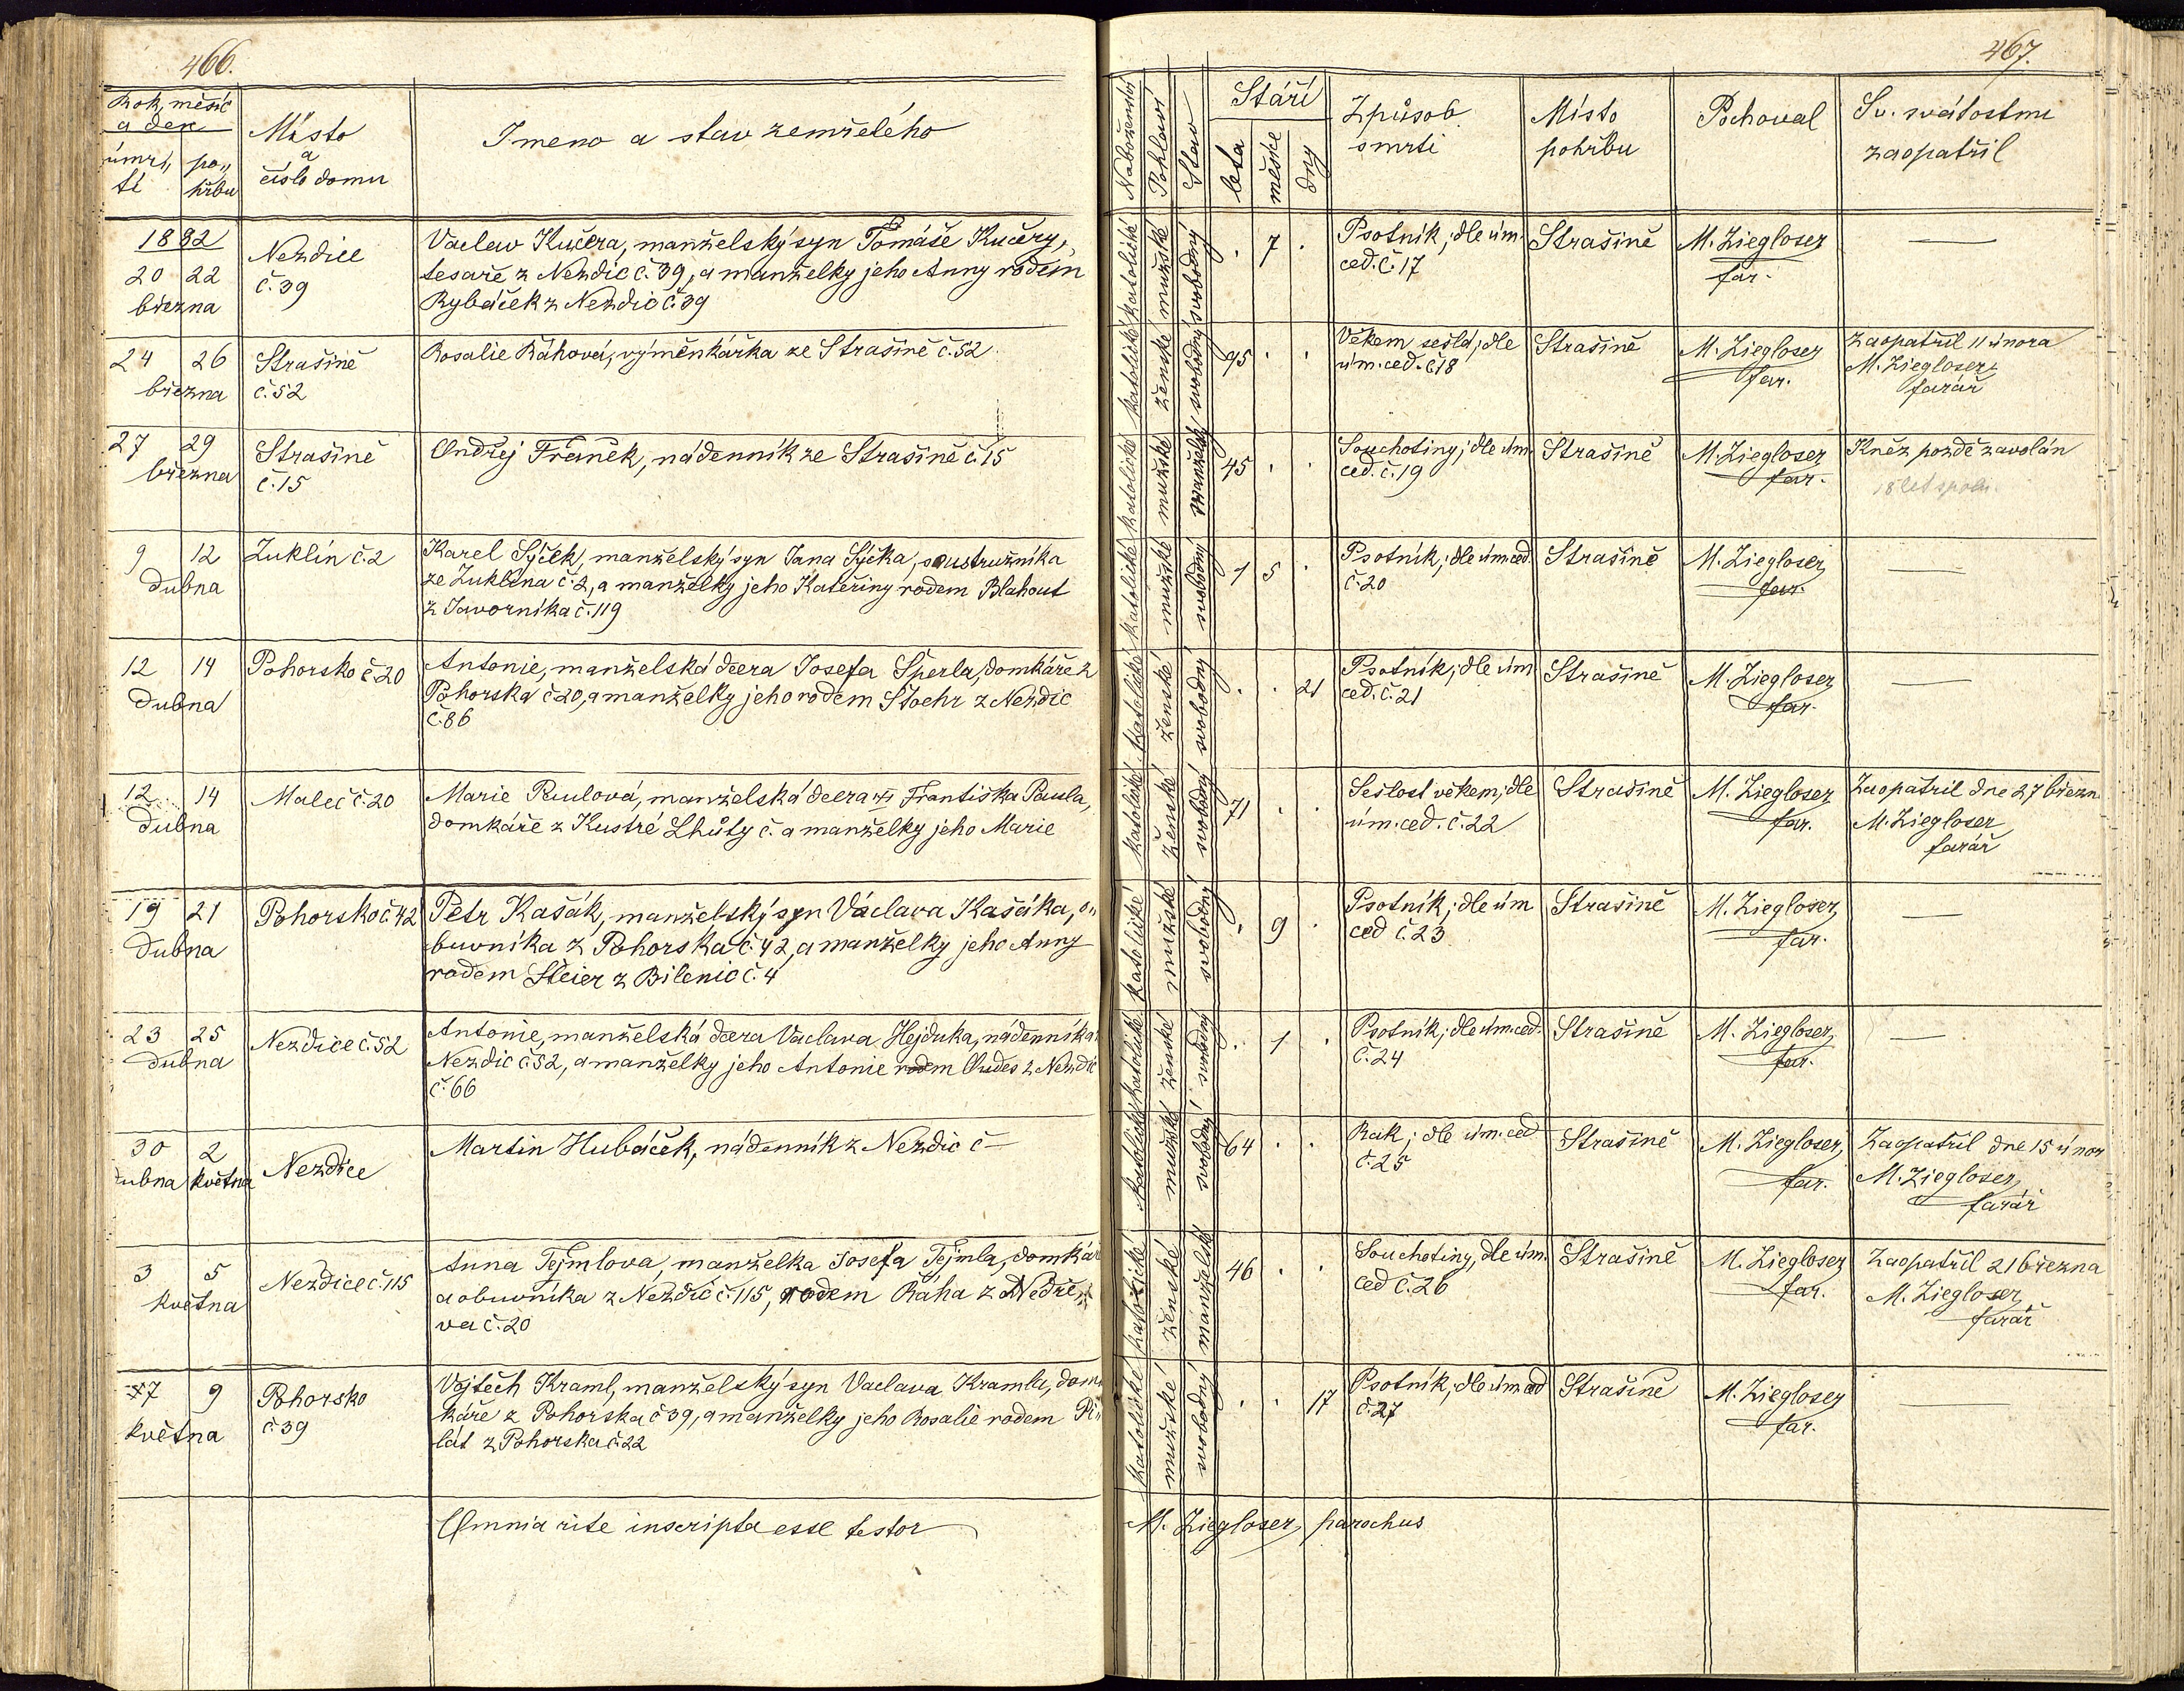 466.
Rok, měsíc
a den
úmr„ po„
tí hřbu
Místo
a
číslo domu
Jmeno a stav zemřelého
1882
20 22
března
Nezdice
č. 39
Vaclav Kučera, manželský syn Tomáše Kučery,
tesaře z Nezdic č. 39, a manželky jeho Anny rodem
Rybáček z Nezdic č 39
24 26
března
Strašíně
č. 52
Rosalie Ráhová, výměnkářka ze Strašíně č. 52
27 29
března
Strašíně
č. 15
Ondřej Franěk, nádenník ze Strašíně č. 15
9 12
dubna
Zuklín č. 2
Karel Sýček, manželský syn Jana Sýčka, soustružníka
ze Zuklína č. 2, a manželky jeho Kateřiny rodem Blahout
z Javorníka č. 119
12 14
dubna
Pohorsko č. 20
Antonie, manželská dcera Josefa Šperla, domkáře z
Pohorska č 20, a manželky jeho rodem Stoehr z Nezdic
č. 86
12 14
dubna
Maleč č. 20
Marie Paulová, manželská dcera Františka Paula,
domkáře z Kustré Lhůty č. a manželky jeho Marie
19 21
dubna
Pohorsko č 42
Petr Kašák, manželský syn Václava Kašáka, o„
buvníka z Pohorska č. 42, a manželky jeho Anny
rodem Steier z Bilenic č. 4
23 25
dubna
Nezdice č. 52
Antonie, manželská dcera Vaclava Hejduka, nádenníka
Nezdic č. 52, a manželky jeho Antonie rodem z Nezdic
č. 66
30 2
dubna května
Nezdice
Martin Hubáček, nádenník z Nezdic č –
3 5
května
Nezdice č. 115
Anna Tejmlova, manželka Josefa Tejmla, domkář
a obuvníka z Nezdic č. 115, rodem Ráha z Nedře„
va č. 20
7 9
května
Pohorsko
č. 39
Vojtěch Kraml, manželský syn Vaclava Kramla, dom„
káře z Pohorska č 39, a manželky jeho Rosalie rodem Pi„
lát z Pohorska č. 22
Omnia rite inscripta esse testor
467.
Náboženství
Pohlaví
Stav
Stáří
leta
měsíce
dny
Způsob
smrti
Místo
pohřbu
Pochoval
Sv. svátostmi
zaopatřil
katolické mužské svobodný
. 7 .
Psotník; dle úm.
ced. č. 17
Strašíně
M. Ziegloser
far.
—
katolické ženské svobodný
95 . .
Věkem sešlá; dle
úm. ced. č. 18
Strašíně
M. Ziegloser
far.
Zaopatřil 11 února
M. Ziegloser,
farář
katolické mužské manželský
45 . .
Souchotiny; dle úm.
ced. č. 19
Strašíně
M. Ziegloser
far.
Kněz pozdě zavolán
18 let spolu.
katolické mužské svobodný
1 5 .
Psotník; dle úm ced.
č. 20
Strašíně
M. Ziegloser
far.
—
katolické ženské svobodný
. . 21
Psotník; dle úm
ced. č. 21
Strašíně
M. Ziegloser
far.
—
katolické ženské svobodný
71 . .
Sešlost věkem; dle
úm. ced. č. 22
Strašíně
M. Ziegloser
far.
Zaopatřil dne 27 březn
M. Ziegloser
farář
katolické mužské svobodný
. 9 .
Psotník; dle úm
ced č. 23
Strašíně
M. Ziegloser,
far.
—
katolické ženské svobodný
. 1 .
Psotník; dle úm. ced.
č. 24
Strašíně
M. Ziegloser,
far.
—
katolické mužské svobodný
64 . .
Rak; dle úm. ced
č. 25
Strašíně
M. Ziegloser,
far.
Zaopatřil dne 15 únor
M. Ziegloser,
farář
katolické ženské manželské
46 . .
Souchotiny, dle úm.
ced č. 26
Strašíně
M. Ziegloser
far.
Zaopatřil 21 března
M. Ziegloser,
farář
katolické mužské svobodný
. . 17
Psotník; dle úm ced
č. 27
Strašíně
M. Ziegloser
far.
—
M. Ziegloser, parochus